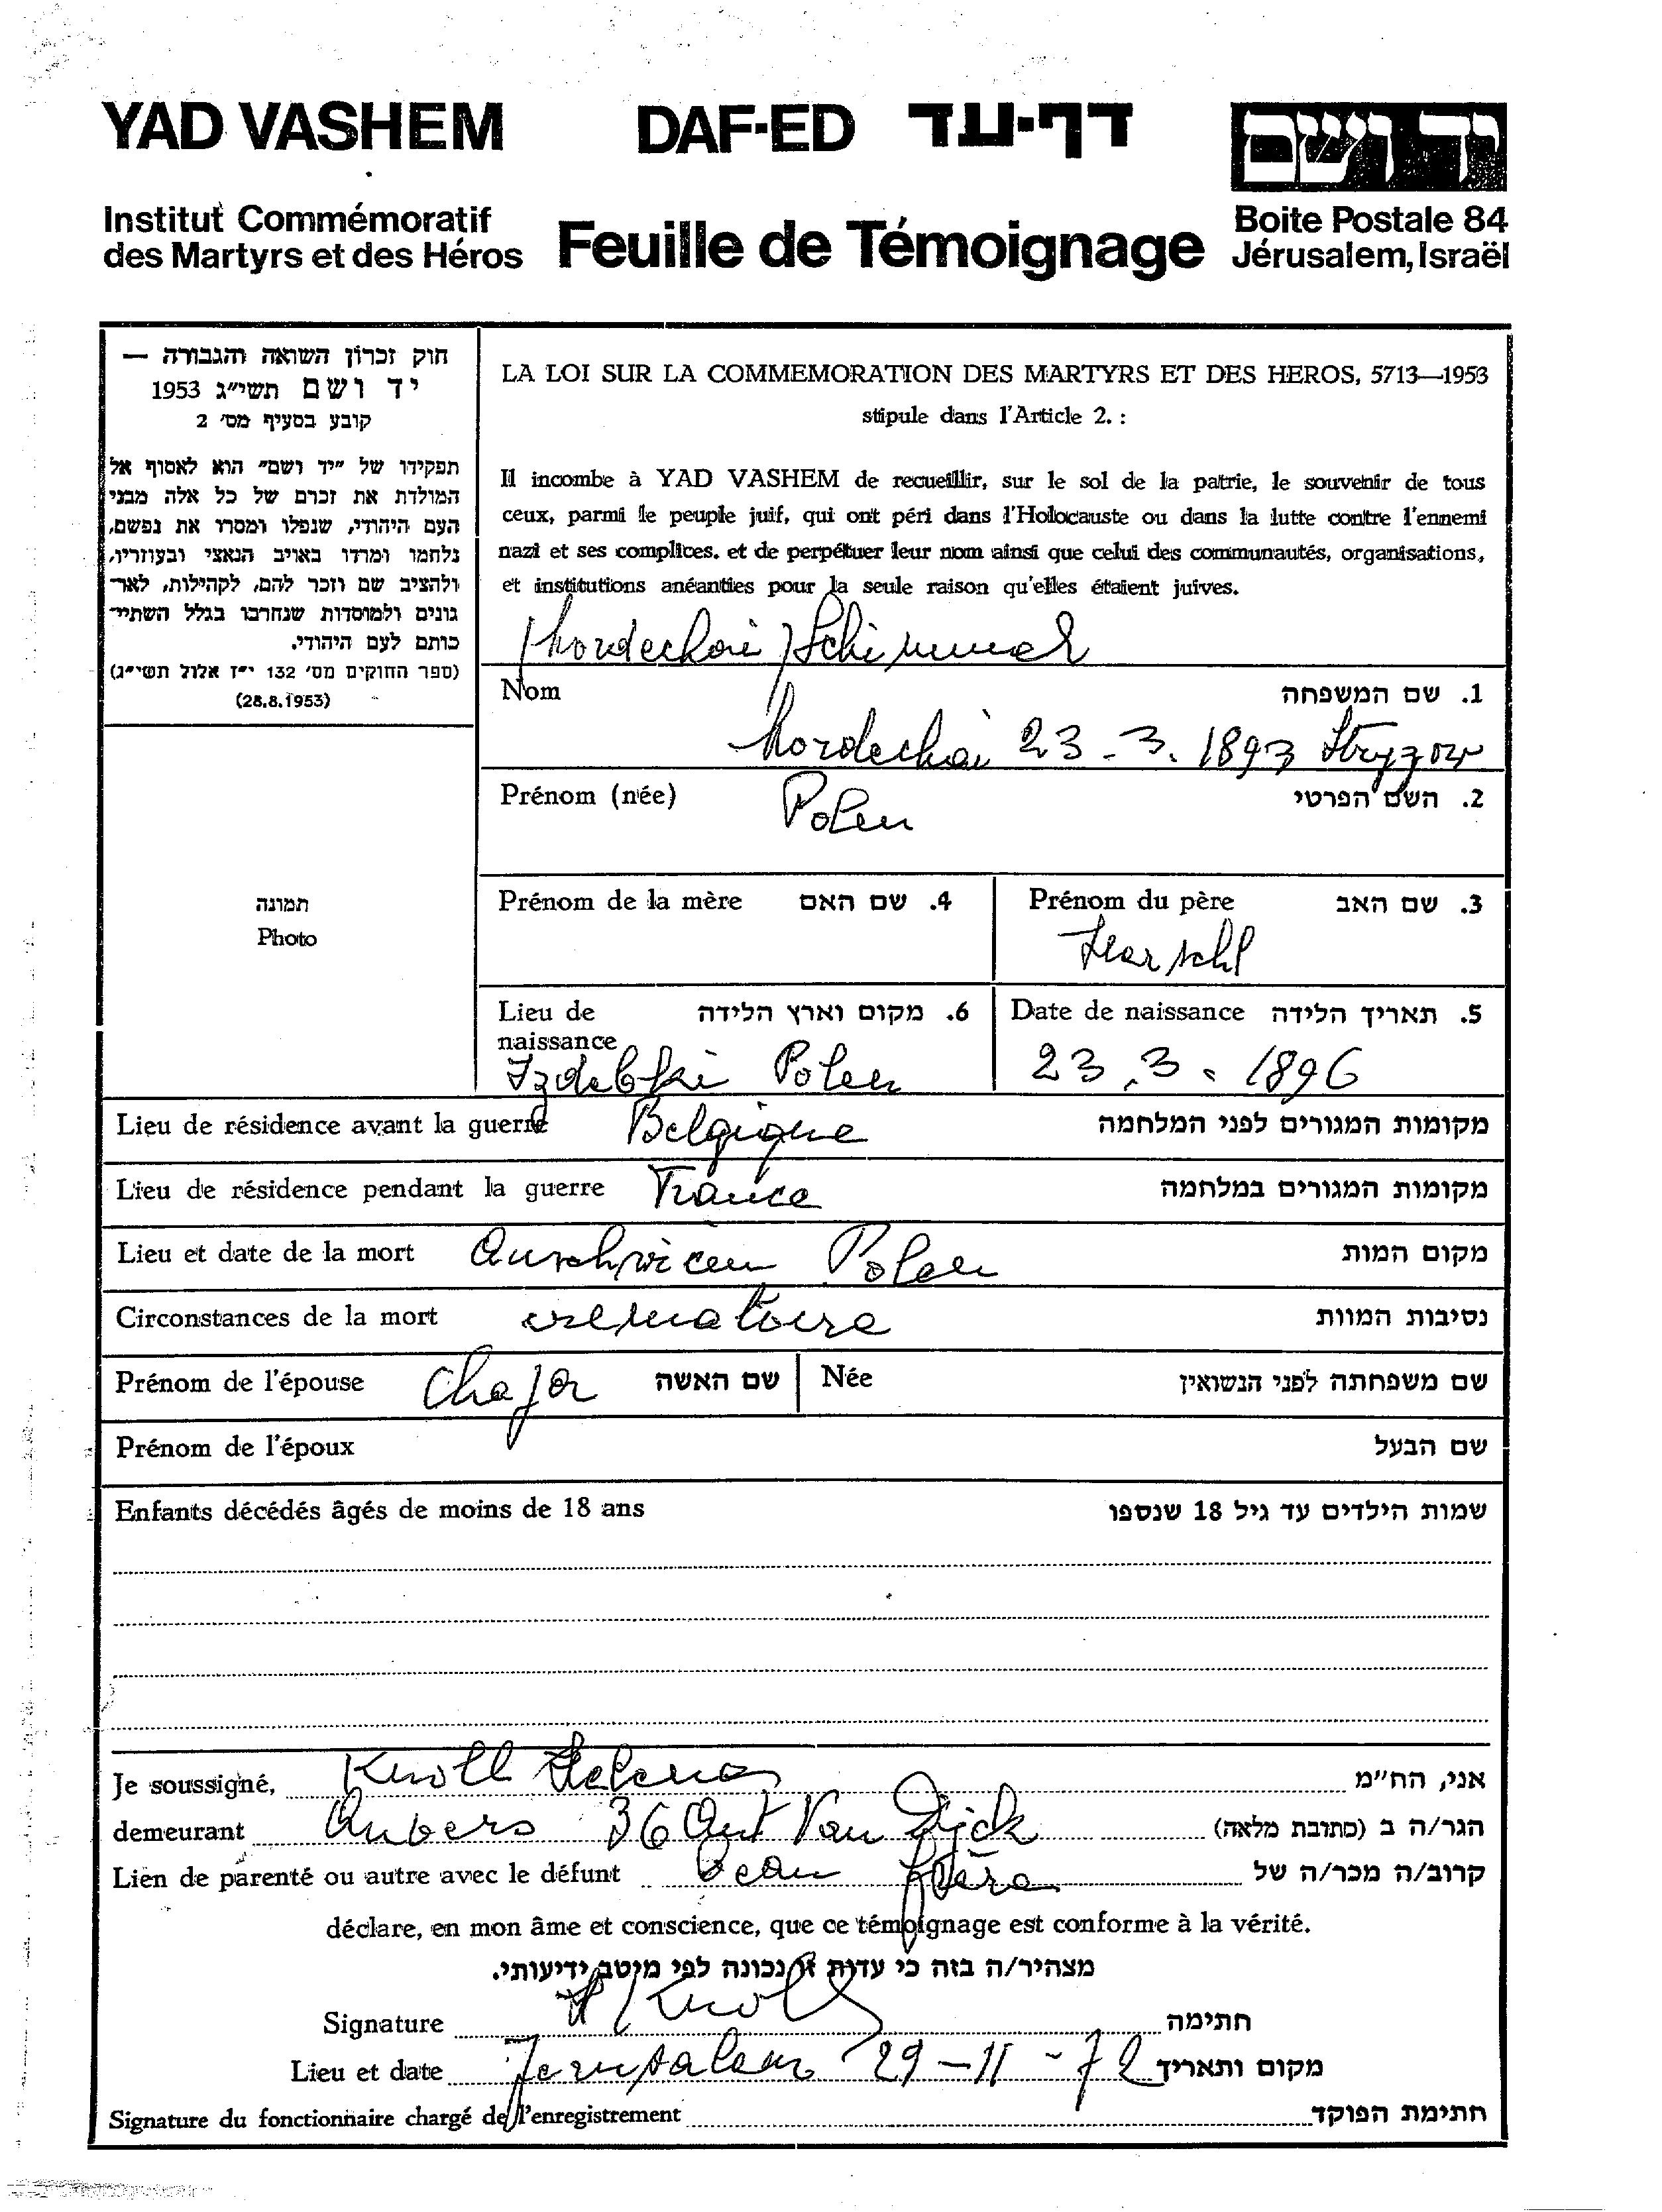 YAD VASHEM DAF-ED דף-עד יד ושם
Institut Commémoratif
des Martyrs et des Héros
Feuille de Témoignage
Boite Postale 84
Jérusalem, Israël
חוק זכרון השואה והגבורה —
יד ושם תשי״ג 1953
קובע בסעיף מס׳ 2
תפקידו של ״יד ושם״ הוא לאסוף אל
המולדת את זכרם של כל אלה מבני
העם היהודי, שנפלו ומסרו את נפשם,
נלחמו ומרדו באויב הנאצי ובעוזריו,
ולהציב שם וזכר להם, לקהילות, לאר־
גונים ולמוסדות שנחרבו בגלל השתיי־
כותם לעם היהודי.
(ספר החוקים מס׳ 132 י״ז אלול תשי״ג)
(28.8.1953)
תמונה
Photo
LA LOI SUR LA COMMEMORATION DES MARTYRS ET DES HEROS, 5713—1953
stipule dans l'Article 2. :
Il incombe à YAD VASHEM de recueillir, sur le sol de la patrie, le souvenir de tous
ceux, parmi le peuple juif, qui ont péri dans l'Holocauste ou dans la lutte contre l'ennemi
nazi et ses complices. et de perpétuer leur nom ainsi que celui des communautés, organisations,
et institutions anéanties pour la seule raison qu'elles étaient juives.
Mordechai Schimmel
Nom 1. שם המשפחה
Mordechai 23-3.1893 Stryzow
Prénom (née) 2. השם הפרטי
Polen
Prénom de la mère 4. שם האם
Prénom du père 3. שם האב
Herschl
Lieu de 6. מקום וארץ הלידה
naissance
Izdebki Polen
Date de naissance 5. תאריך הלידה
23.3.1896
Lieu de résidence avant la guerre Belgique מקומות המגורים לפני המלחמה
Lieu de résidence pendant la guerre France מקומות המגורים במלחמה
Lieu et date de la mort Auschwicen Polen מקום המות
Circonstances de la mort crematoire נסיבות המוות
Prénom de l'épouse Chaja שם האשה Née שם משפחתה לפני הנשואין
Prénom de l'époux שם הבעל
Enfants décédés âgés de moins de 18 ans שמות הילדים עד גיל 18 שנספו
Je soussigné, Knoll Helena אני, הח״מ
demeurant Anvers 36 Ant Van Dijck הגר/ה ב (כתובת מלאה)
Lien de parenté ou autre avec le défunt Beau frère קרוב/ה מכר/ה של
déclare, en mon âme et conscience, que ce témoignage est conforme à la vérité.
מצהיר/ה בזה כי עדות זו נכונה לפי מיטב ידיעותי.
Signature H Knoll חתימה
Lieu et date Jerusalem 29-11-72 מקום ותאריך
Signature du fonctionnaire chargé de l'enregistrement חתימת הפוקד